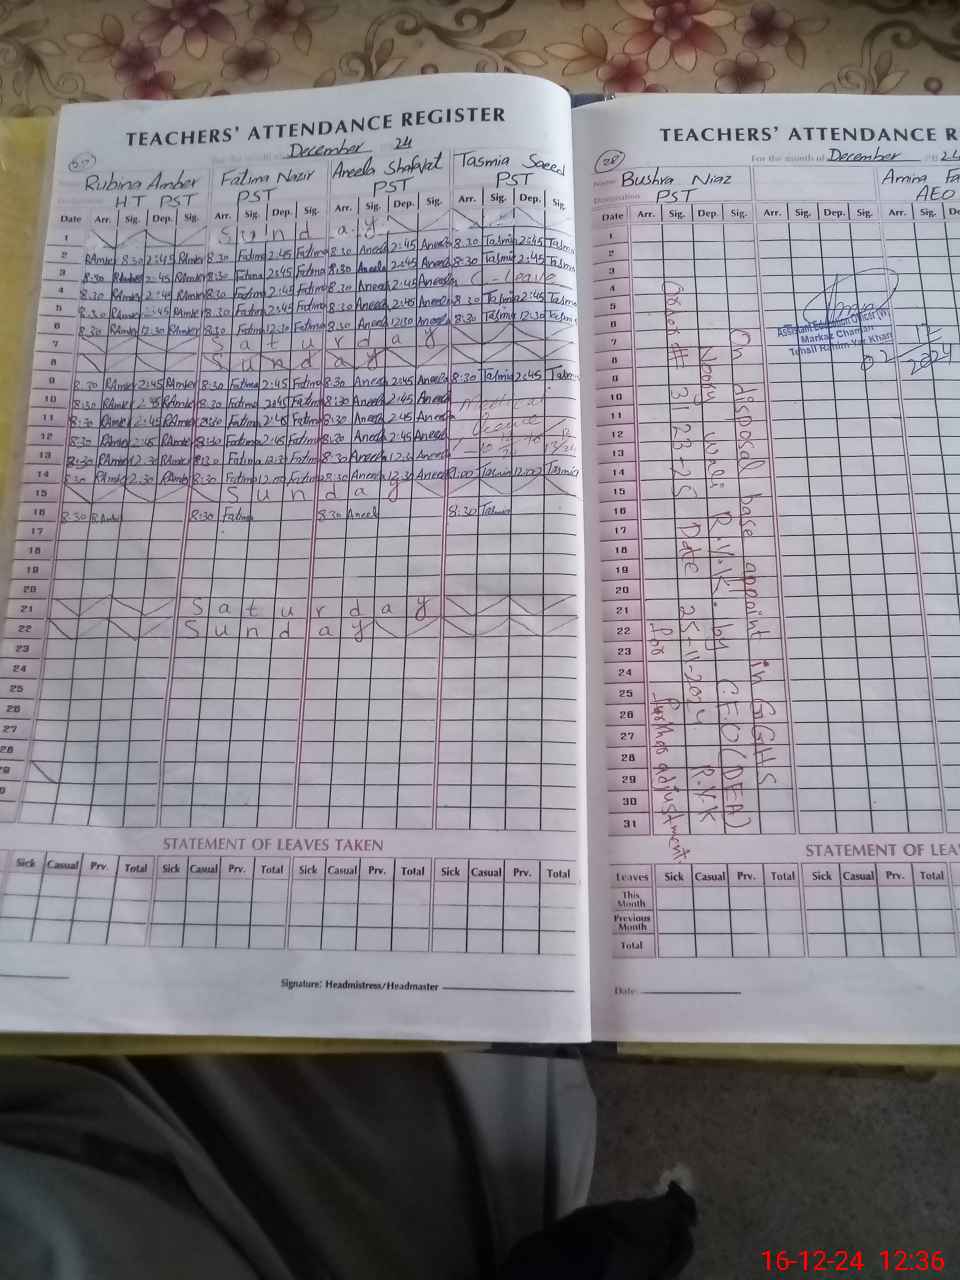 TEACHERS' ATTENDANCE REGISTER
For the month of December 24
Rubina Amber Fatima Nazir Aneela Shafqat Tasmia Saeed
HT PST PST PST PST
Date Arr. Sig. Dep. Sig. Arr. Sig. Dep. Sig. Arr. Sig. Dep. Sig. Arr. Sig. Dep. Sig.
1 Sunday
2 RAmber 8:30 2:45 RAmber 8:30 Fatima 2:45 Fatima 8:30 Aneela 2:45 Aneela 8:30 Tasmia 2:45 Tasmia
3 8:30 RAmber 2:45 RAmber 8:30 Fatima 2:45 Fatima 8:30 Aneela 2:45 Aneela 8:30 Tasmia 2:45 Tasmia
4 8:30 RAmber 2:45 RAmber 8:30 Fatima 2:45 Fatima 8:30 Aneela 2:45 Aneela C - Leave
5 8:30 RAmber 2:45 RAmber 8:30 Fatima 2:45 Fatima 8:30 Aneela 2:45 Aneela 8:30 Tasmia 2:45 Tasmia
6 8:30 RAmber 12:30 RAmber 8:30 Fatima 12:30 Fatima 8:30 Aneela 12:30 Aneela 8:30 Tasmia 12:30 Tasmia
7 Saturday
8 Sunday
9 8:30 RAmber 2:45 RAmber 8:30 Fatima 2:45 Fatima 8:30 Aneela 2:45 Aneela 8:30 Tasmia 2:45 Tasmia
10 8:30 RAmber 2:45 RAmber 8:30 Fatima 2:45 Fatima 8:30 Aneela 2:45 Aneela Medical
11 8:30 RAmber 2:45 RAmber 8:30 Fatima 2:45 Fatima 8:30 Aneela 2:45 Aneela Leave
12 8:30 RAmber 2:45 RAmber 8:30 Fatima 2:45 Fatima 8:30 Aneela 2:45 Aneela
13 8:30 RAmber 12:30 RAmber 8:30 Fatima 12:30 Fatima 8:30 Aneela 12:30 Aneela
14 8:30 RAmber 2:30 RAmber 8:30 Fatima 12:00 Fatima 8:30 Aneela 12:30 Aneela 9:00 Tasmia 12:00 Tasmia
15 Sunday
16 8:30 RAmber 8:30 Fatima 8:30 Aneela 8:30 Tasmia
17
18
19
20
21 Saturday
22 Sunday
23
24
25
26
27
28
29
STATEMENT OF LEAVES TAKEN
Sick Casual Prv. Total Sick Casual Prv. Total Sick Casual Prv. Total Sick Casual Prv. Total
Signature: Headmistress/Headmaster
TEACHERS' ATTENDANCE R
28
For the month of December 24
Name Bushra Niaz Amina Fa
Designation PST AEO
Date Arr. Sig. Dep. Sig. Arr. Sig. Dep. Sig. Arr. Sig. De
1
2
3
4
5
6
7
8
9
10
11
12
13
14
15
16
17
18
19
20
21
22
23
24
25
26
27
28
29
30
31
On disposal base appoint in GGHS
Nooray Wali R.Y.K. by C.E.O (DEA)
Order # 3123-25 Date 25-11-2024 R.Y.K
for further adjustment.
Assistant Education Officer (W)
Markaz Chaman
Tehsil Rahim Yar Khan
02 12
2024
STATEMENT OF LEA
Leaves Sick Casual Prv. Total Sick Casual Prv.
This Month
Previous Month
Total
Date:
16-12-24 12:36